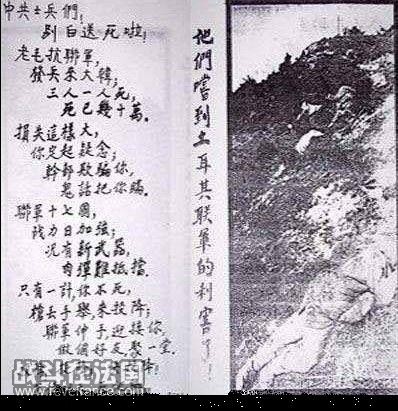 中共士兵們!
別白送死啦!
老毛抗聯軍,
發兵來大韓;
三人一人死,
死已幾十萬。
損失這樣大,
你定起疑念;
幹部欺騙你,
鬼話把你瞞。
聯軍十七國,
战力日加強;
況有新武器,
肉彈難抵擋。
只有一計,你不死,
槍丟手舉,來投降;
聯軍伸手,迎接你,
做個好友,聚一堂。
降!
他們嚐到土耳其联軍的利害了!
战斗在法国
www.revefrance.com